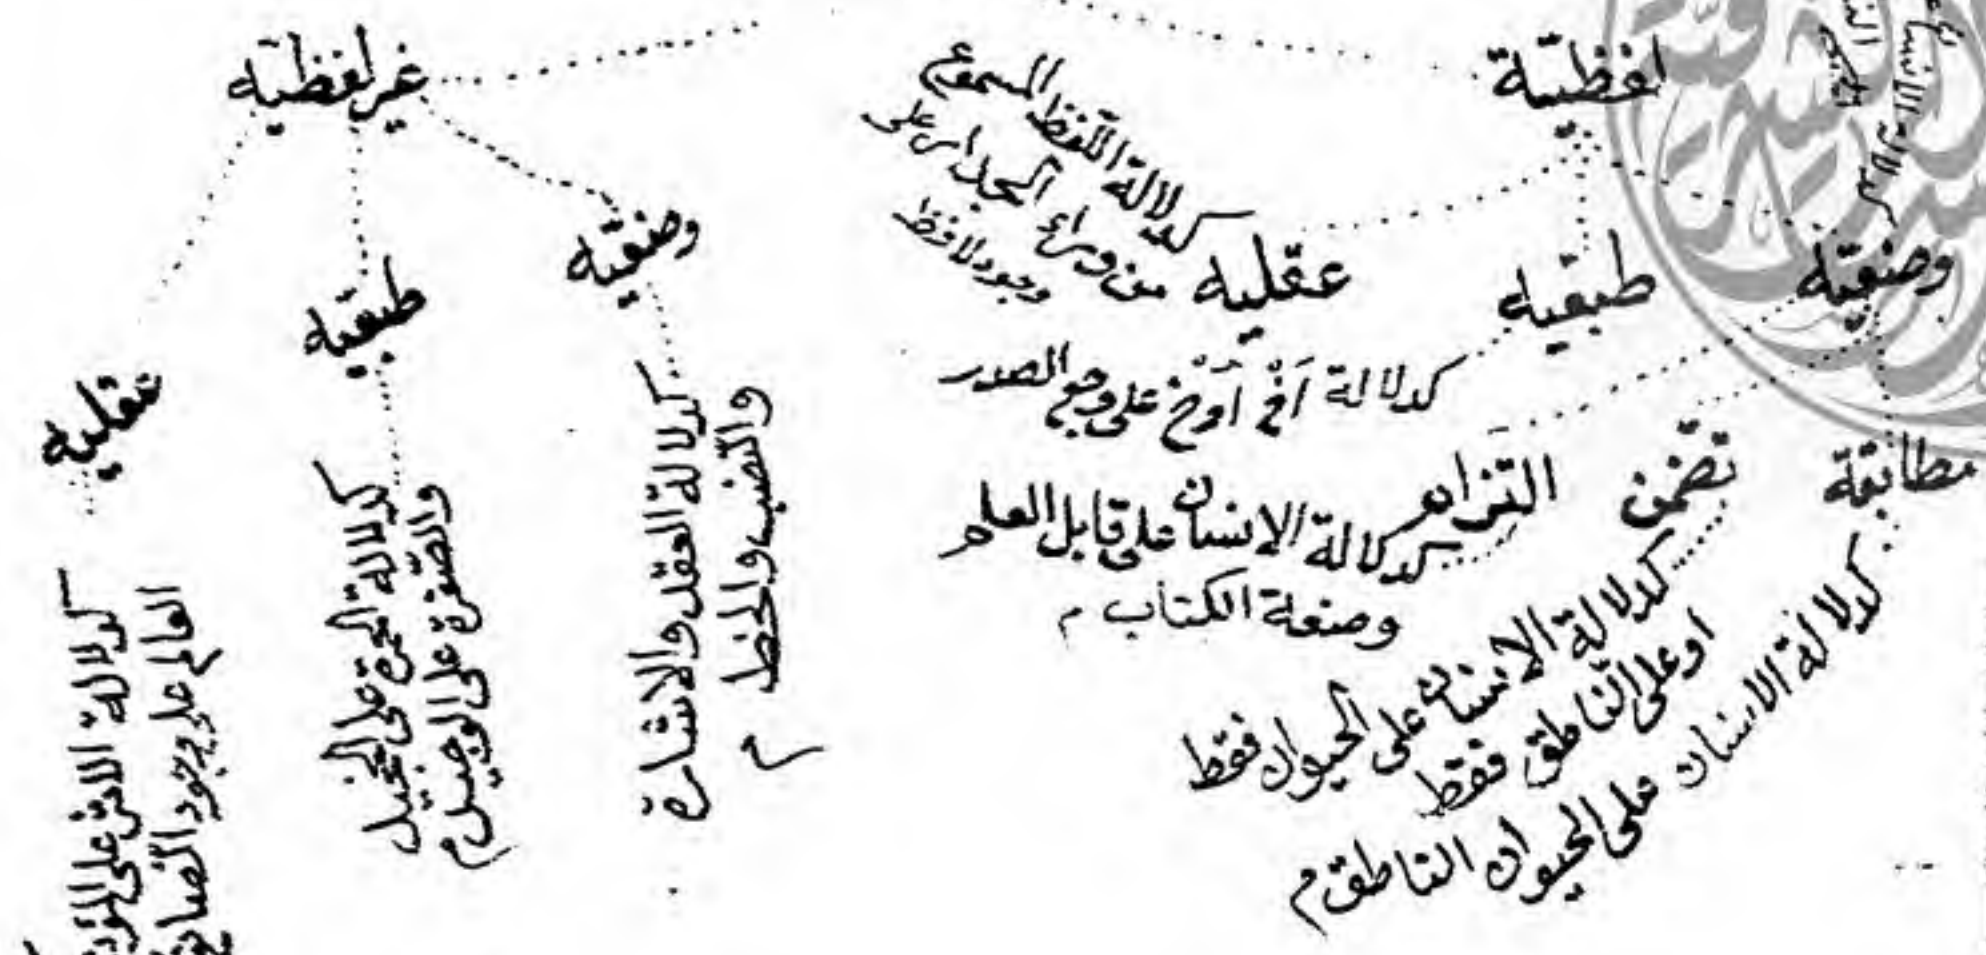 لفظيّة
غير لفظيّه
وضعيّه
طبعيّه
عقليه
كدلالة اللّفظ المسموع
من وراء الجدار على
وجود لافظ
كدلالة اَخْ اَوْخْ على وجع الصدر
مطابقة
تضمّن
التزام
كدلالة الانسان على قابل العلم
وصنعة الكتاب م
كدلالة الانسان على الحيوان فقط
او على النّاطق فقط
كدلالة الانسان على الحيوان الناطق م
وضعيّه
طبعيّه
عقليه
كدلالة العقد والاشارة
والنّصب والخط م
كدلالة الحمرة على الخجيل
والصّفرة على الوجيل م
كدلالة الاثر على المؤثر
العالم على وجود الصّانع
كدلالة الانسان